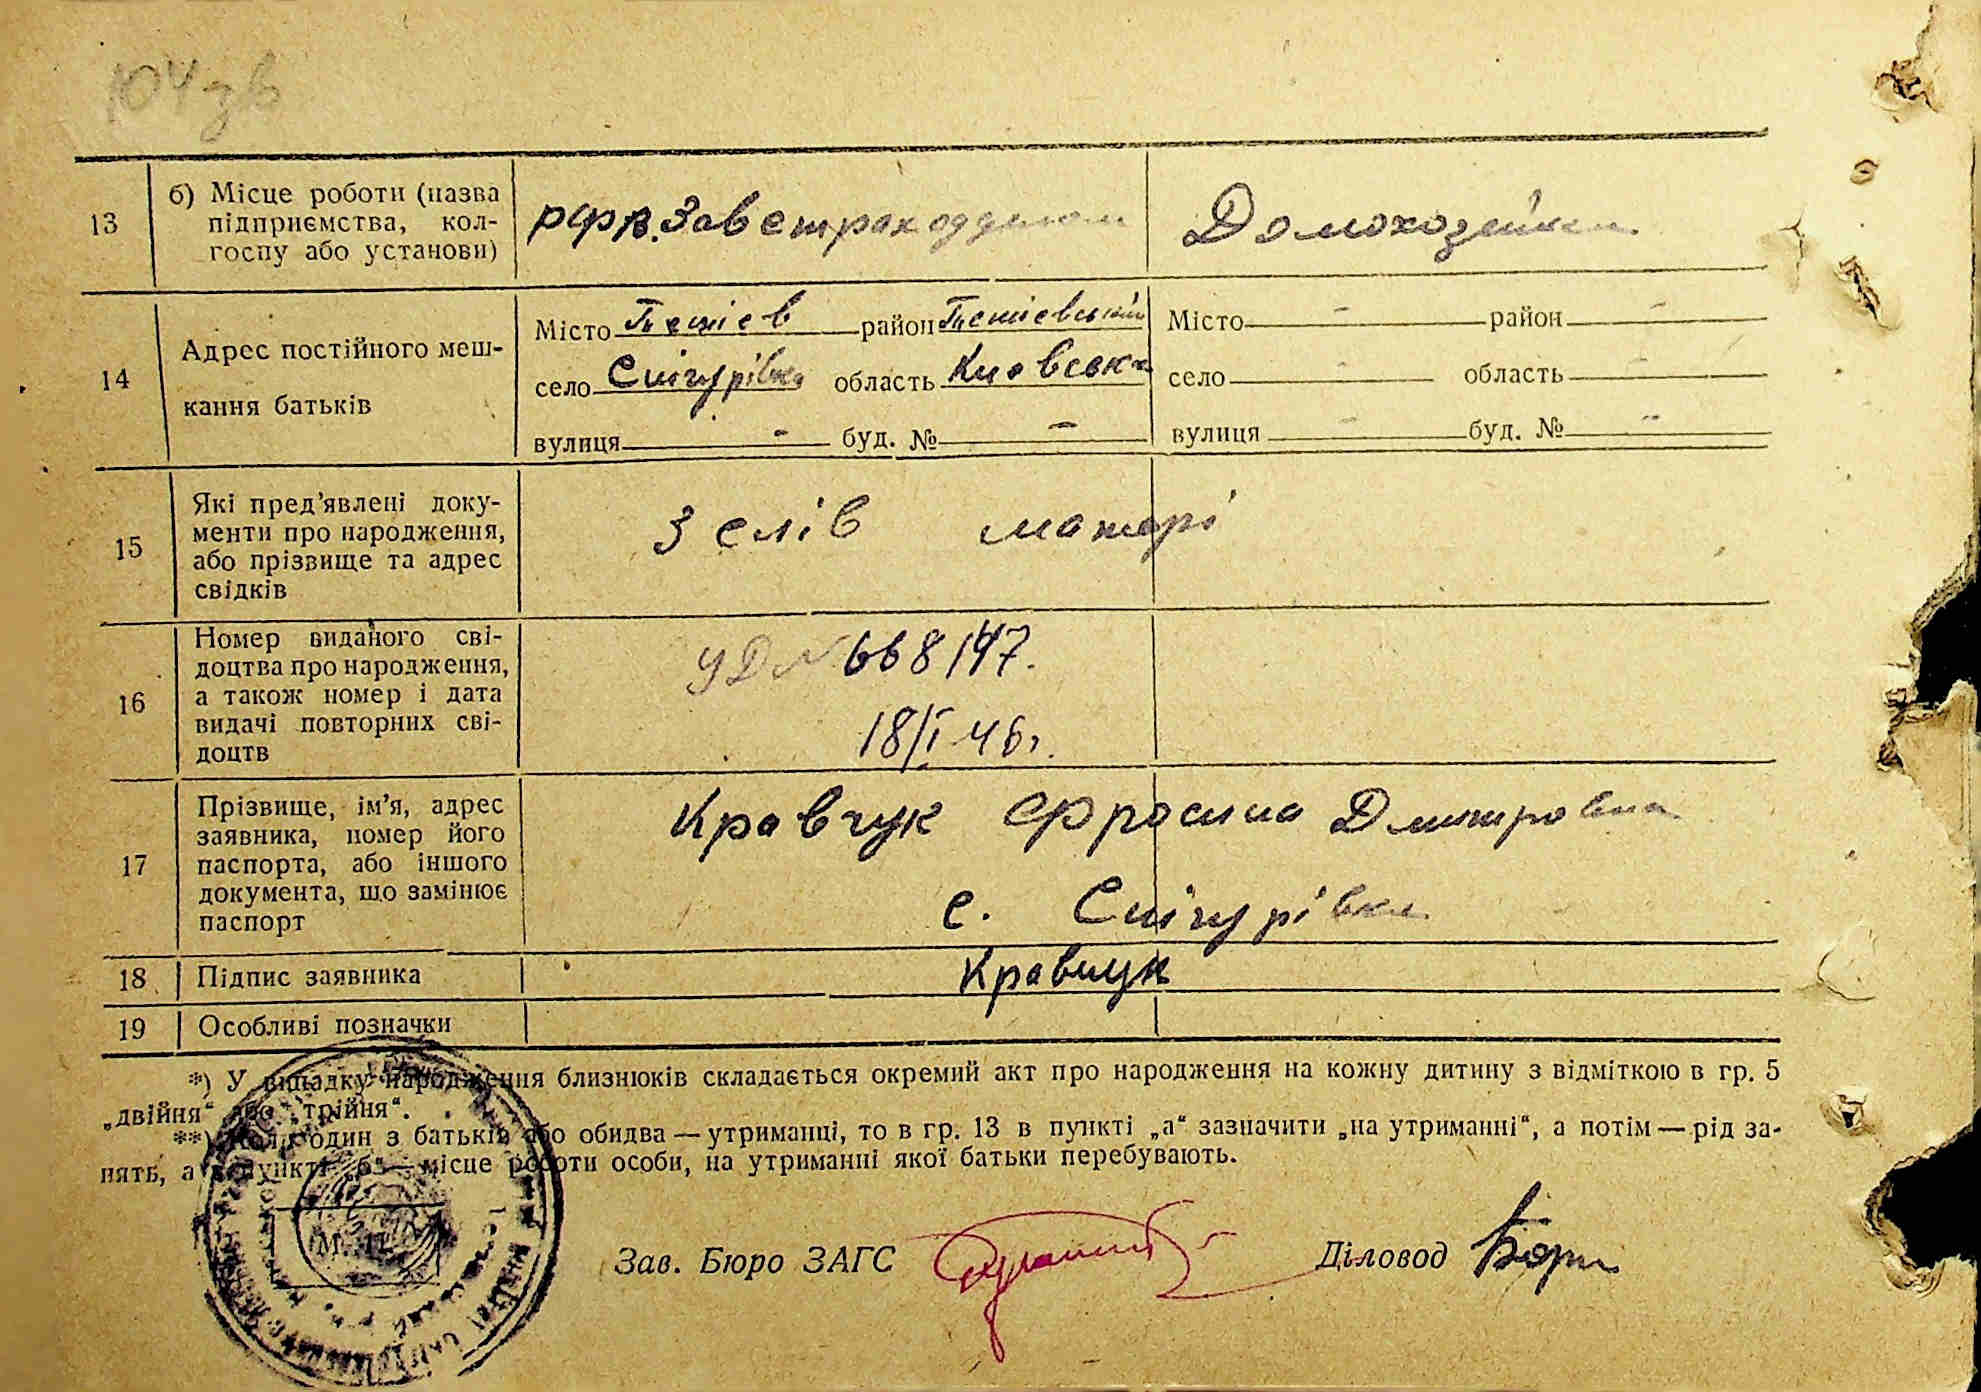 104 зв
13 б) Місце роботи (назва підприємства, колгоспу або установи) РФВ. Зав страх одделом Домохозяйка
14 Адрес постійного мешкання батьків
Місто Тетіев район Тетіевський Місто - район -
село Снігурівка область Киевська село - область -
вулиця - буд. № - вулиця - буд. № -
15 Які пред'явлені документи про народження, або прізвище та адрес свідків З слів матері
16 Номер виданого свідоцтва про народження, а також номер і дата видачі повторних свідоцтв УД № 668147.
18/I 46 г.
17 Прізвище, ім'я, адрес заявника, номер його паспорта, або іншого документа, що замінює паспорт Кравчук Єфросина Дмитровна
с. Снігурівка
18 Підпис заявника Кравчук
19 Особливі позначки
*) У випадку народження близнюків складається окремий акт про народження на кожну дитину з відміткою в гр. 5
„двійня“ або „трійня“.
**) Коли один з батьків або обидва — утриманці, то в гр. 13 в пункті „а“ зазначити „на утриманні“, а потім — рід за-
нять, а в пункті „б“ — місце роботи особи, на утриманні якої батьки перебувають.
М. П.
Зав. Бюро ЗАГС Діловод